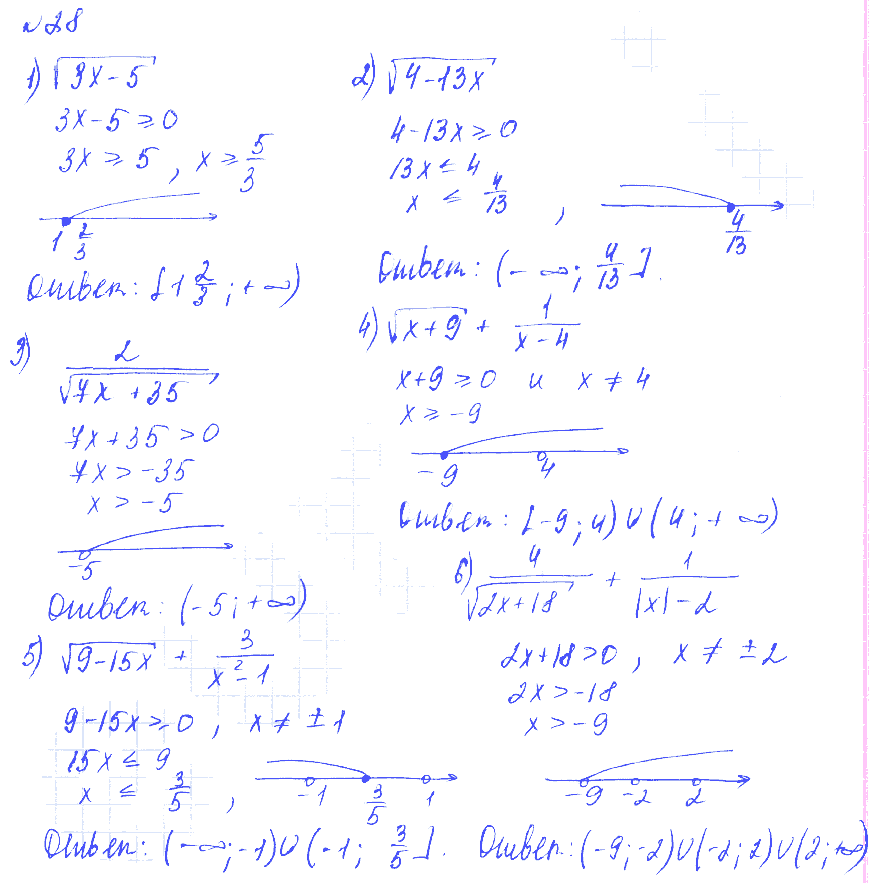 №28
1) √(3x-5)
3x-5 ≥ 0
3x ≥ 5, x ≥ 5/3
1 2/3
Ответ: [1 2/3; +∞)
2) √(4-13x)
4-13x ≥ 0
13x ≤ 4
x ≤ 4/13,
4/13
Ответ: (-∞; 4/13].
3) 2/√(7x+35)
7x+35 > 0
7x > -35
x > -5
-5
Ответ: (-5; +∞)
4) √(x+9) + 1/(x-4)
x+9 ≥ 0 и x ≠ 4
x ≥ -9
-9 4
Ответ: [-9; 4) ∪ (4; +∞)
5) √(9-15x) + 3/(x²-1)
9-15x ≥ 0, x ≠ ±1
15x ≤ 9
x ≤ 3/5,
-1 3/5 1
Ответ: (-∞; -1) ∪ (-1; 3/5].
6) 4/√(2x+18) + 1/(|x|-2)
2x+18 > 0, x ≠ ±2
2x > -18
x > -9
-9 -2 2
Ответ: (-9; -2) ∪ (-2; 2) ∪ (2; +∞)